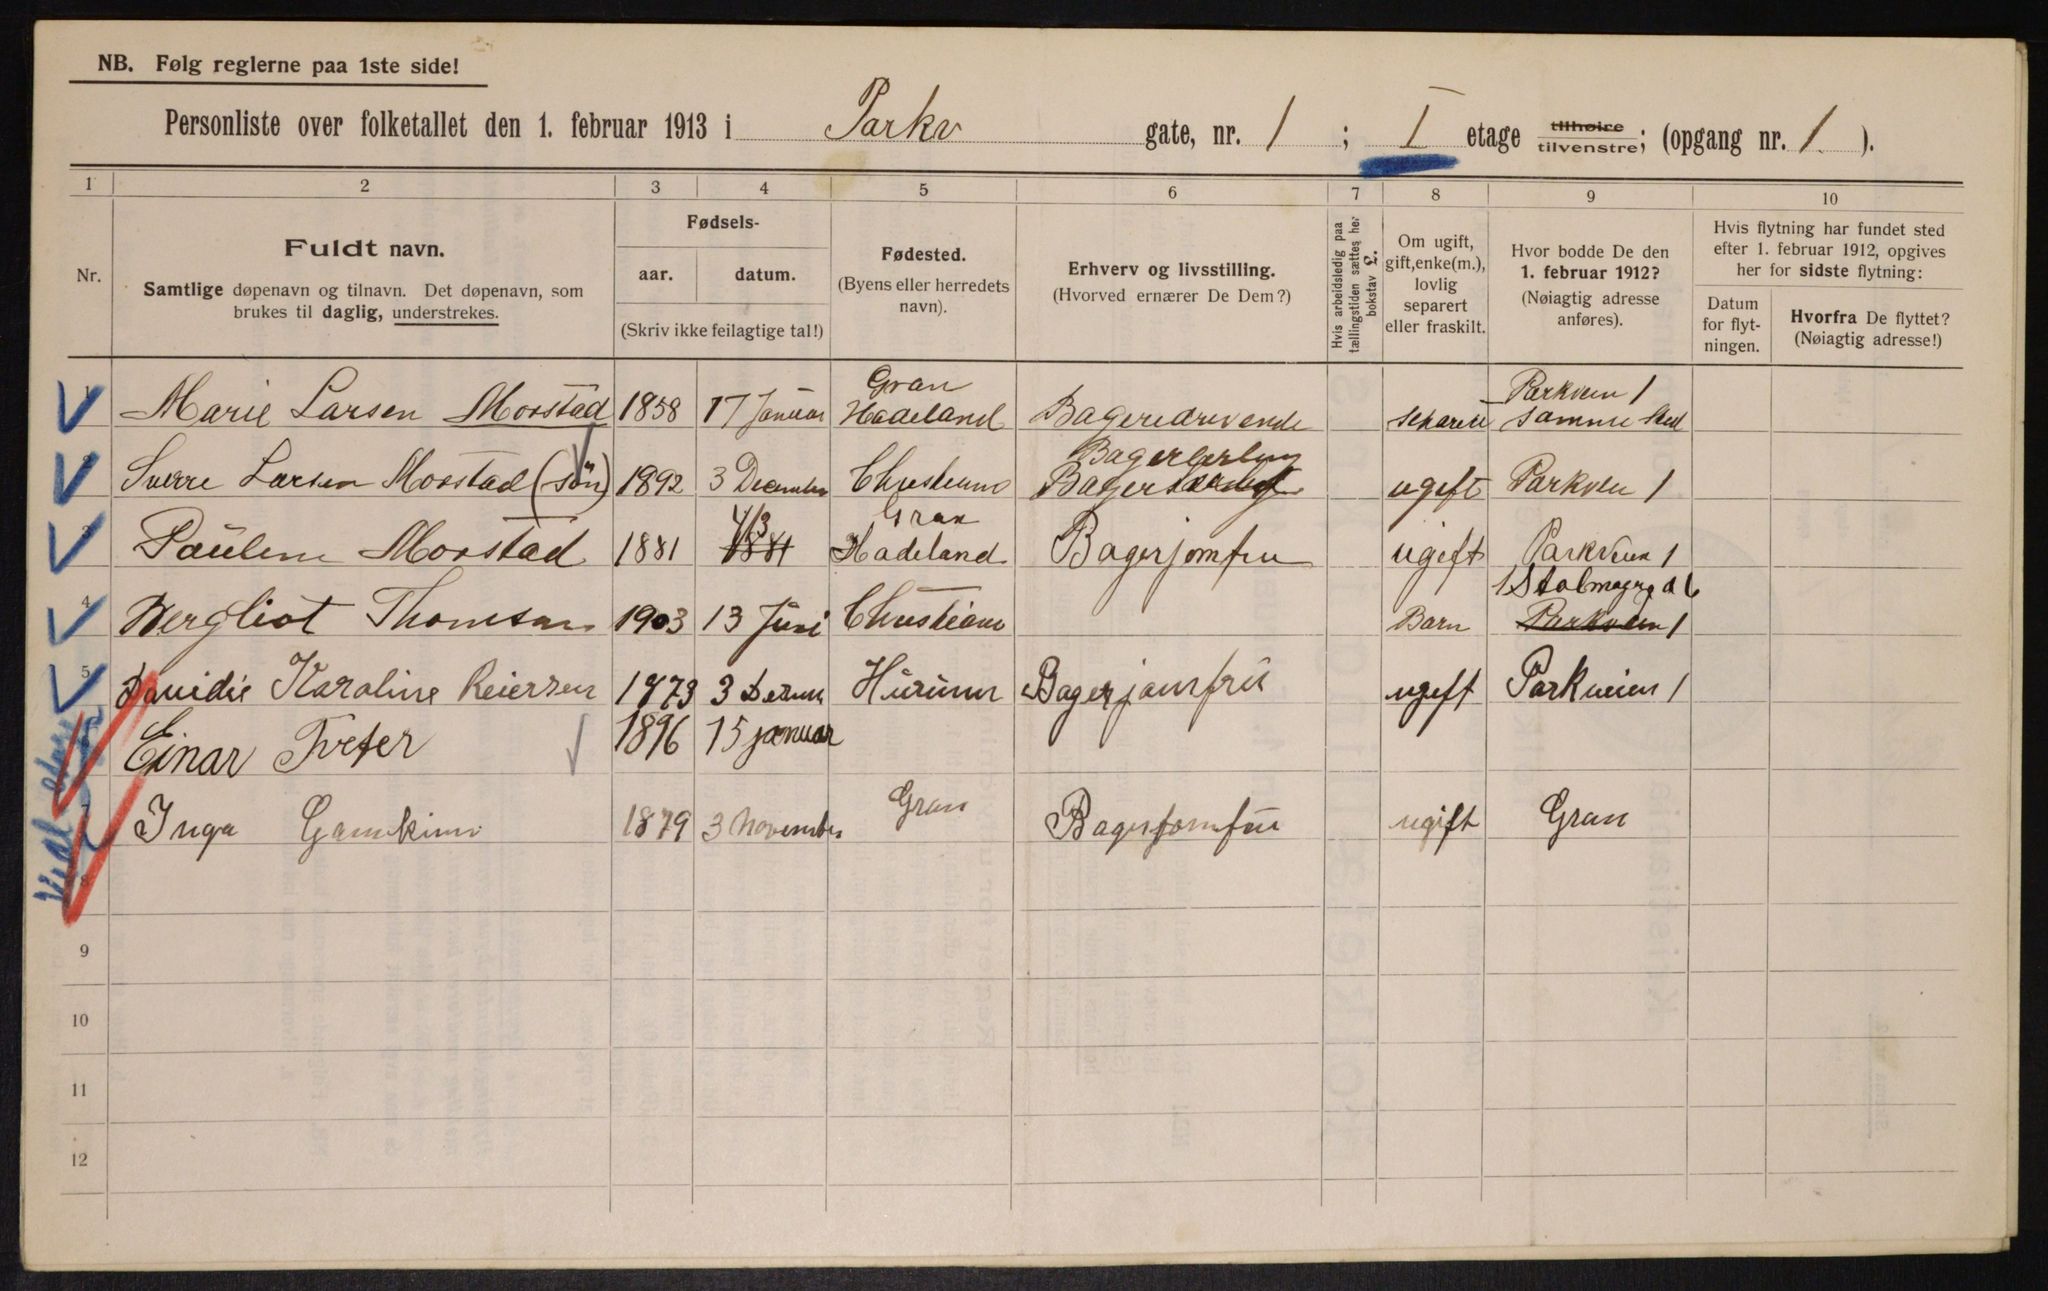 NB. Følg reglerne paa 1ste side!
Personliste over folketallet den 1. februar 1913 i Parkv gate, nr. 1 ; I etage tilhøire tilvenstre; (opgang nr. 1 ).
1 2 3 4 5 6 7 8 9 10
Nr.
Fuldt navn.
Samtlige døpenavn og tilnavn. Det døpenavn, som
brukes til daglig, understrekes.
Fødsels-
aar. datum.
(Skriv ikke feilagtige tal!)
Fødested.
(Byens eller herredets
navn).
Erhverv og livsstilling.
(Hvorved ernærer De Dem?)
Hvis arbeidsledig paa
tællingstiden sættes her
bokstav L.
Om ugift,
gift, enke(m.),
lovlig
separert
eller fraskilt.
Hvor bodde De den
1. februar 1912?
(Nøiagtig adresse
anføres).
Hvis flytning har fundet sted
efter 1. februar 1912, opgives
her for sidste flytning:
Datum
for flyt-
ningen.
Hvorfra De flyttet?
(Nøiagtig adresse!)
Gran Parkveien 1
1 Marie Larsen Morstad 1858 17 Januar Hadeland Bageridrivende samme sted
2 Sverre Larsen Morstad (søn) 1892 3 December Christiania ugift Parkveien 1
4/3 Gran
3 Morstad 1881 1881 Hadeland Bagerjomfru ugift Parkveien 1
4 Bergliot Thomsen 1903 13 Juni Christiania Barn Parkveien 1
5 Davidie Karoline Reiersen 1873 3 Hurum Bagerjomfru ugift Parkveien 1
Einar Tveter 1896 15 januar
7 Inga 1879 3 November Gran Bagerjomfru ugift Gran
8
9
10
11
12